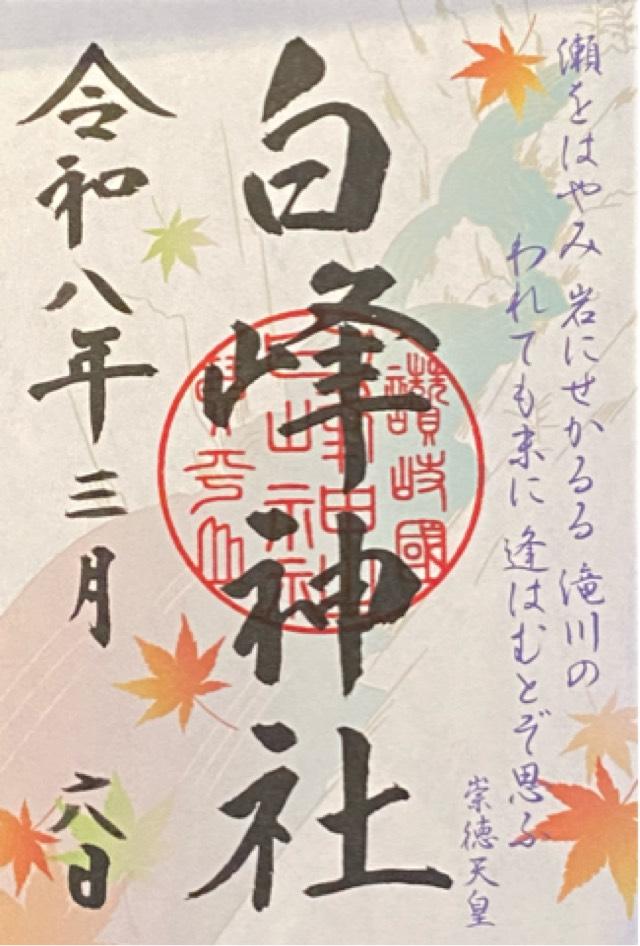 瀬をはやみ 岩にせかるる 滝川の
われても末に 逢はむとぞ思ふ
崇徳天皇
白峰神社
讃岐國
令和八年三月 六日